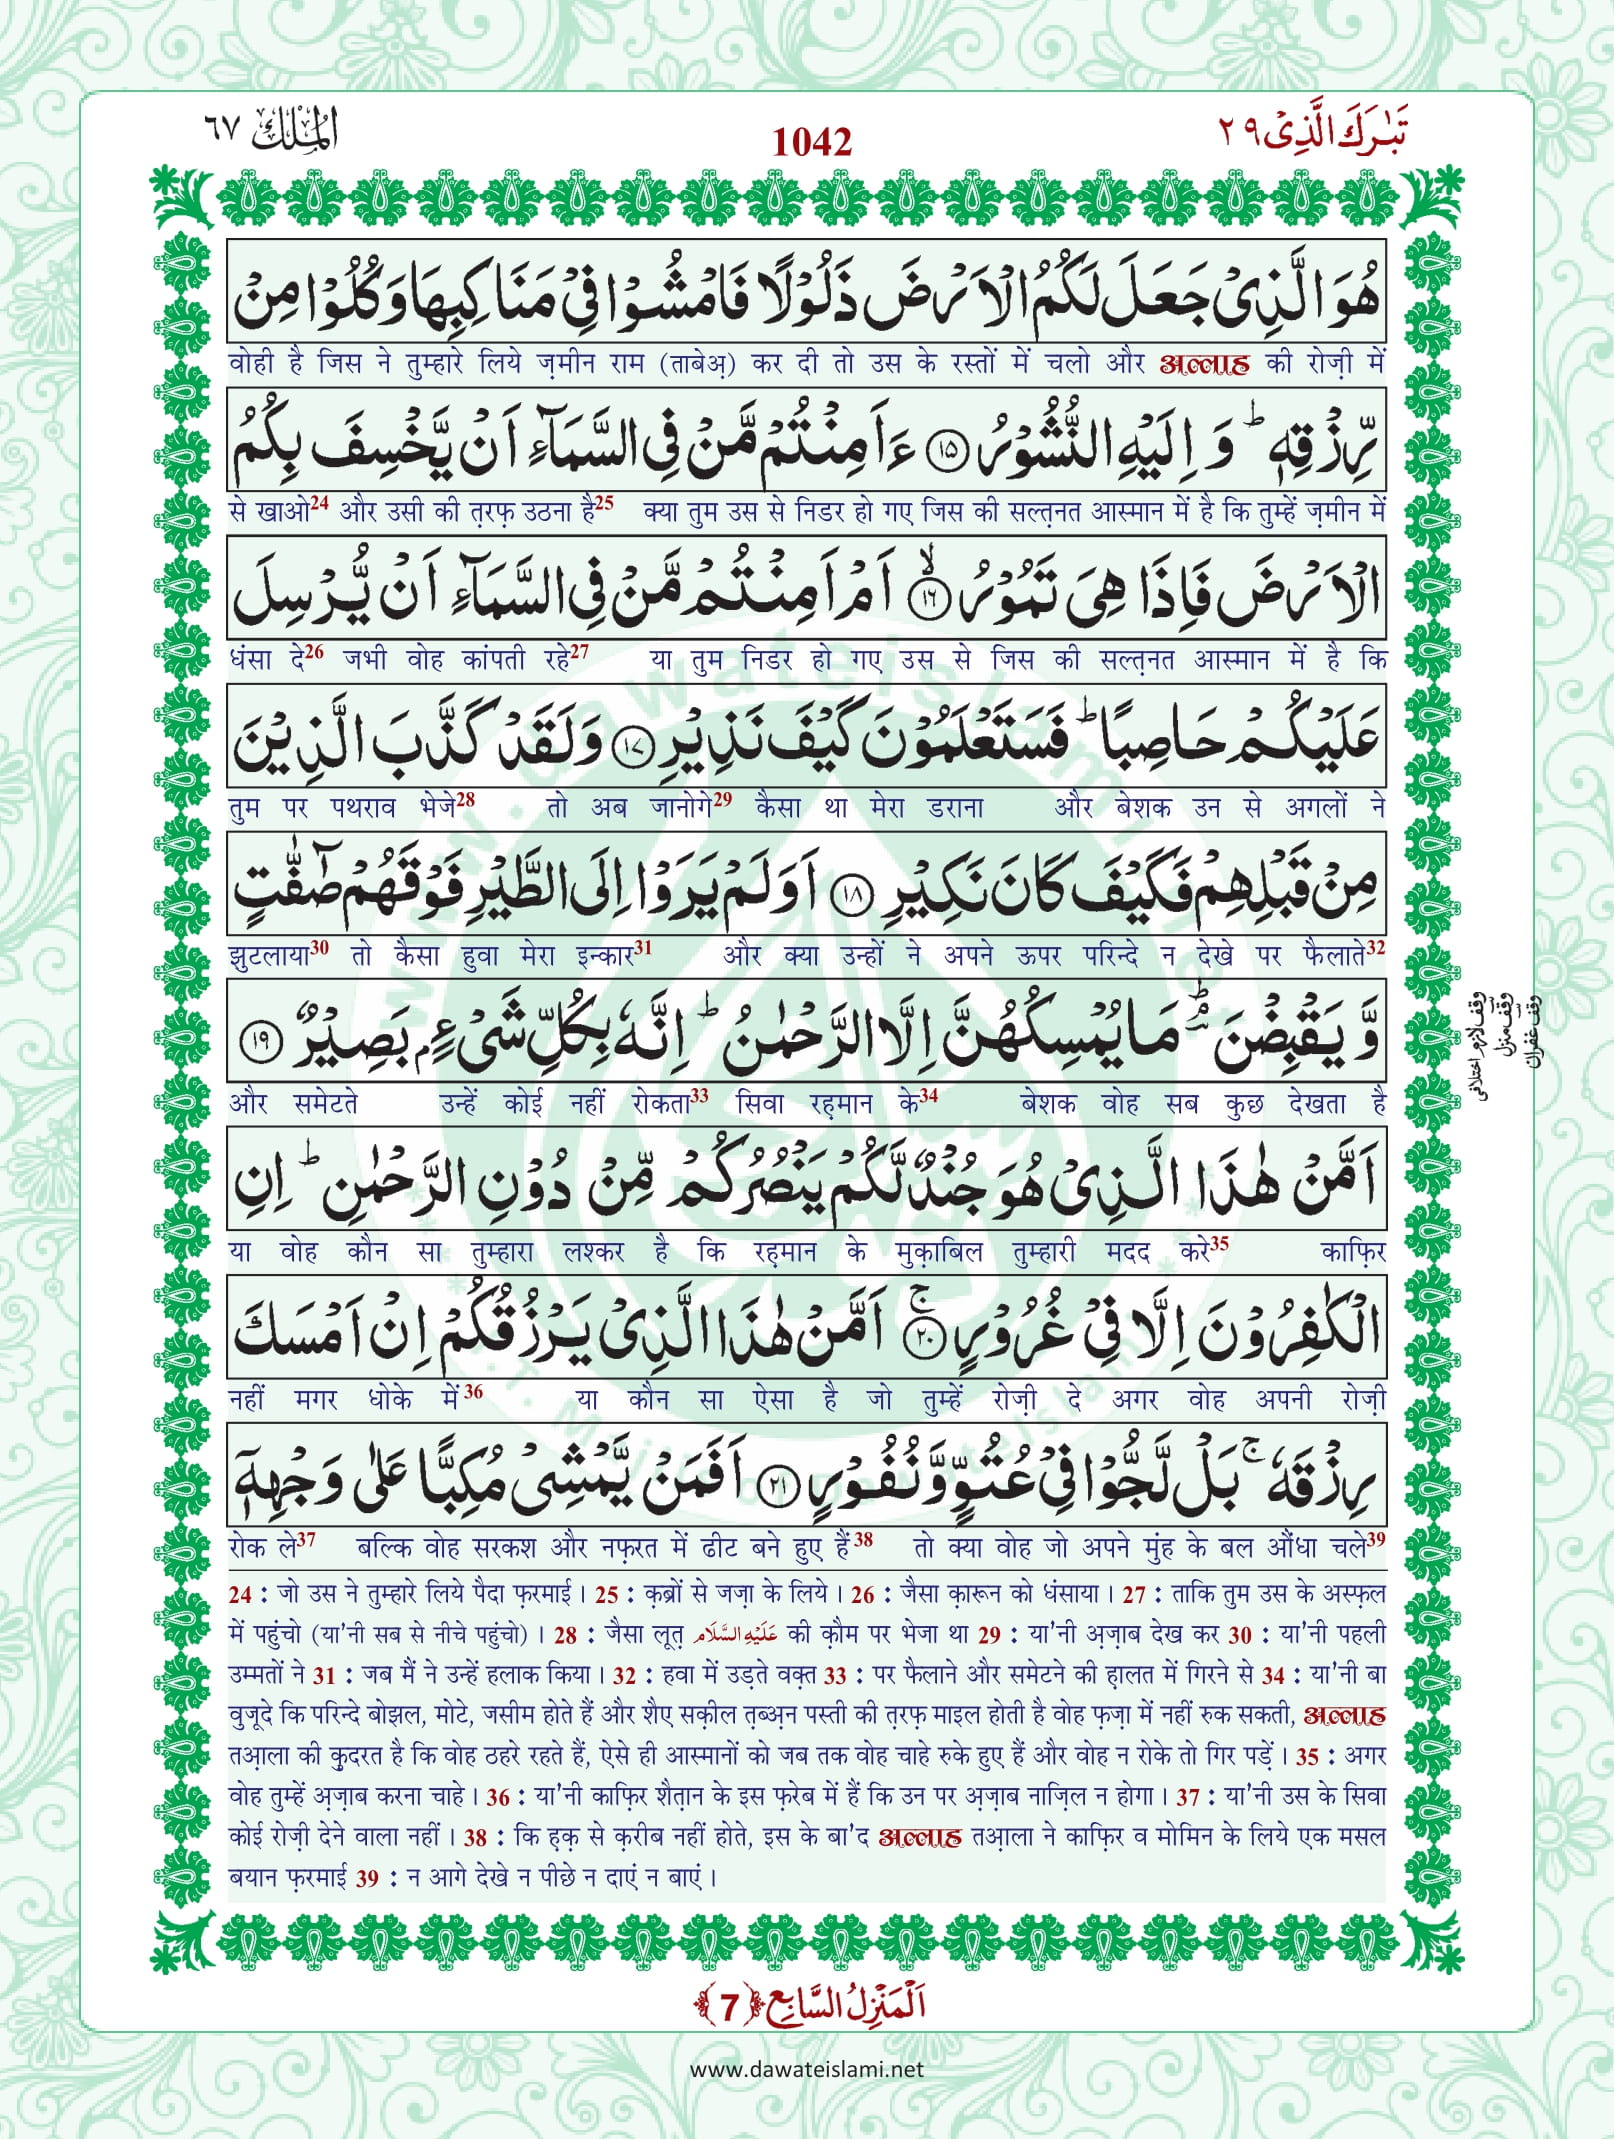 الملك ٦٧
1042
تَبٰرَكَ الَّذِیْ ٢٩
هُوَ الَّذِیْ جَعَلَ لَكُمُ الْاَرْضَ ذَلُوْلًا فَامْشُوْا فِیْ مَنَاكِبِهَا وَ كُلُوْا مِنْ
वोही है जिस ने तुम्हारे लिये ज़मीन राम (ताबेअ़) कर दी तो उस के रस्तों में चलो और अल्लाह की रोज़ी में
رِّزْقِهٖؕ وَ اِلَیْهِ النُّشُوْرُ ﴿۱۵﴾ ءَاَمِنْتُمْ مَّنْ فِی السَّمَآءِ اَنْ یَّخْسِفَ بِكُمُ
से खाओ24 और उसी की त़रफ़ उठना है25 क्या तुम उस से निडर हो गए जिस की सल्त़नत आस्मान में है कि तुम्हें ज़मीन में
الْاَرْضَ فَاِذَا هِیَ تَمُوْرُۙ ﴿۱۶﴾ اَمْ اَمِنْتُمْ مَّنْ فِی السَّمَآءِ اَنْ یُّرْسِلَ
धंसा दे26 जभी वोह कांपती रहे27 या तुम निडर हो गए उस से जिस की सल्त़नत आस्मान में है कि
عَلَیْكُمْ حَاصِبًاؕ فَسَتَعْلَمُوْنَ كَیْفَ نَذِیْرِ ﴿۱۷﴾ وَ لَقَدْ كَذَّبَ الَّذِیْنَ
तुम पर पथराव भेजे28 तो अब जानोगे29 कैसा था मेरा डराना और बेशक उन से अगलों ने
مِنْ قَبْلِهِمْ فَكَیْفَ كَانَ نَكِیْرِ ﴿۱۸﴾ اَوَ لَمْ یَرَوْا اِلَى الطَّیْرِ فَوْقَهُمْ صٰٓفّٰتٍ
झुटलाया30 तो कैसा हुवा मेरा इन्कार31 और क्या उन्हों ने अपने ऊपर परिन्दे न देखे पर फैलाते32
وَّ یَقْبِضْنَ ؔۘؕ مَا یُمْسِكُهُنَّ اِلَّا الرَّحْمٰنُؕ اِنَّهٗ بِكُلِّ شَیْءٍۭ بَصِیْرٌ ﴿۱۹﴾
وقف لازم اختلافی
وقف منزل
وقف غفران
और समेटते उन्हें कोई नहीं रोकता33 सिवा रह़मान के34 बेशक वोह सब कुछ देखता है
اَمَّنْ هٰذَا الَّذِیْ هُوَ جُنْدٌ لَّكُمْ یَنْصُرُكُمْ مِّنْ دُوْنِ الرَّحْمٰنِؕ اِنِ
या वोह कौन सा तुम्हारा लश्कर है कि रह़मान के मुक़ाबिल तुम्हारी मदद करे35 काफ़िर
الْكٰفِرُوْنَ اِلَّا فِیْ غُرُوْرٍۚ ﴿۲۰﴾ اَمَّنْ هٰذَا الَّذِیْ یَرْزُقُكُمْ اِنْ اَمْسَكَ
नहीं मगर धोके में36 या कौन सा ऐसा है जो तुम्हें रोज़ी दे अगर वोह अपनी रोज़ी
رِزْقَهٗۚ بَلْ لَّجُّوْا فِیْ عُتُوٍّ وَّ نُفُوْرٍ ﴿۲۱﴾ اَفَمَنْ یَّمْشِیْ مُكِبًّا عَلٰى وَجْهِهٖۤ
रोक ले37 बल्कि वोह सरकश और नफ़रत में ढीट बने हुए हैं38 तो क्या वोह जो अपने मुंह के बल औंधा चले39
24 : जो उस ने तुम्हारे लिये पैदा फ़रमाई। 25 : क़ब्रों से जज़ा के लिये। 26 : जैसा क़ारून को धंसाया। 27 : ताकि तुम उस के अस्फ़ल
में पहुंचो (या'नी सब से नीचे पहुंचो)। 28 : जैसा लूत़ عَلَيْهِ السَّلَام की क़ौम पर भेजा था 29 : या'नी अ़ज़ाब देख कर 30 : या'नी पहली
उम्मतों ने 31 : जब मैं ने उन्हें हलाक किया। 32 : हवा में उड़ते वक़्त 33 : पर फैलाने और समेटने की ह़ालत में गिरने से 34 : या'नी बा
वुजूदे कि परिन्दे बोझल, मोटे, जसीम होते हैं और शैए सक़ील त़ब्अ़न पस्ती की त़रफ़ माइल होती है वोह फ़ज़ा में नहीं रुक सकती, अल्लाह
तआ़ला की क़ुदरत है कि वोह ठहरे रहते हैं, ऐसे ही आस्मानों को जब तक वोह चाहे रुके हुए हैं और वोह न रोके तो गिर पड़ें। 35 : अगर
वोह तुम्हें अ़ज़ाब करना चाहे। 36 : या'नी काफ़िर शैत़ान के इस फ़रेब में हैं कि उन पर अ़ज़ाब नाज़िल न होगा। 37 : या'नी उस के सिवा
कोई रोज़ी देने वाला नहीं। 38 : कि ह़क़ से क़रीब नहीं होते, इस के बा'द अल्लाह तआ़ला ने काफ़िर व मोमिन के लिये एक मसल
बयान फ़रमाई 39 : न आगे देखे न पीछे न दाएं न बाएं।
اَلْمَنْزِلُ السَّابِع ﴿7﴾
www.dawateislami.net